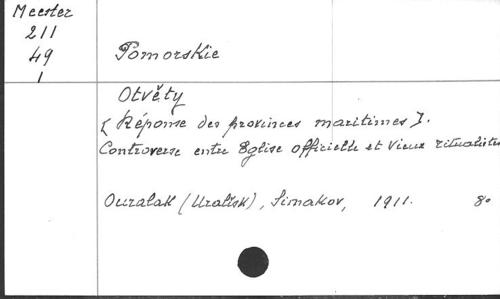 Meester
211
49
1
Pomorskie
Otvěty
[Réponse des provinces maritimes].
Controverse entre Eglise officielle et vieux ritualistes
Ouralsk (Uralĭsk), Simakov, 1911. 8o